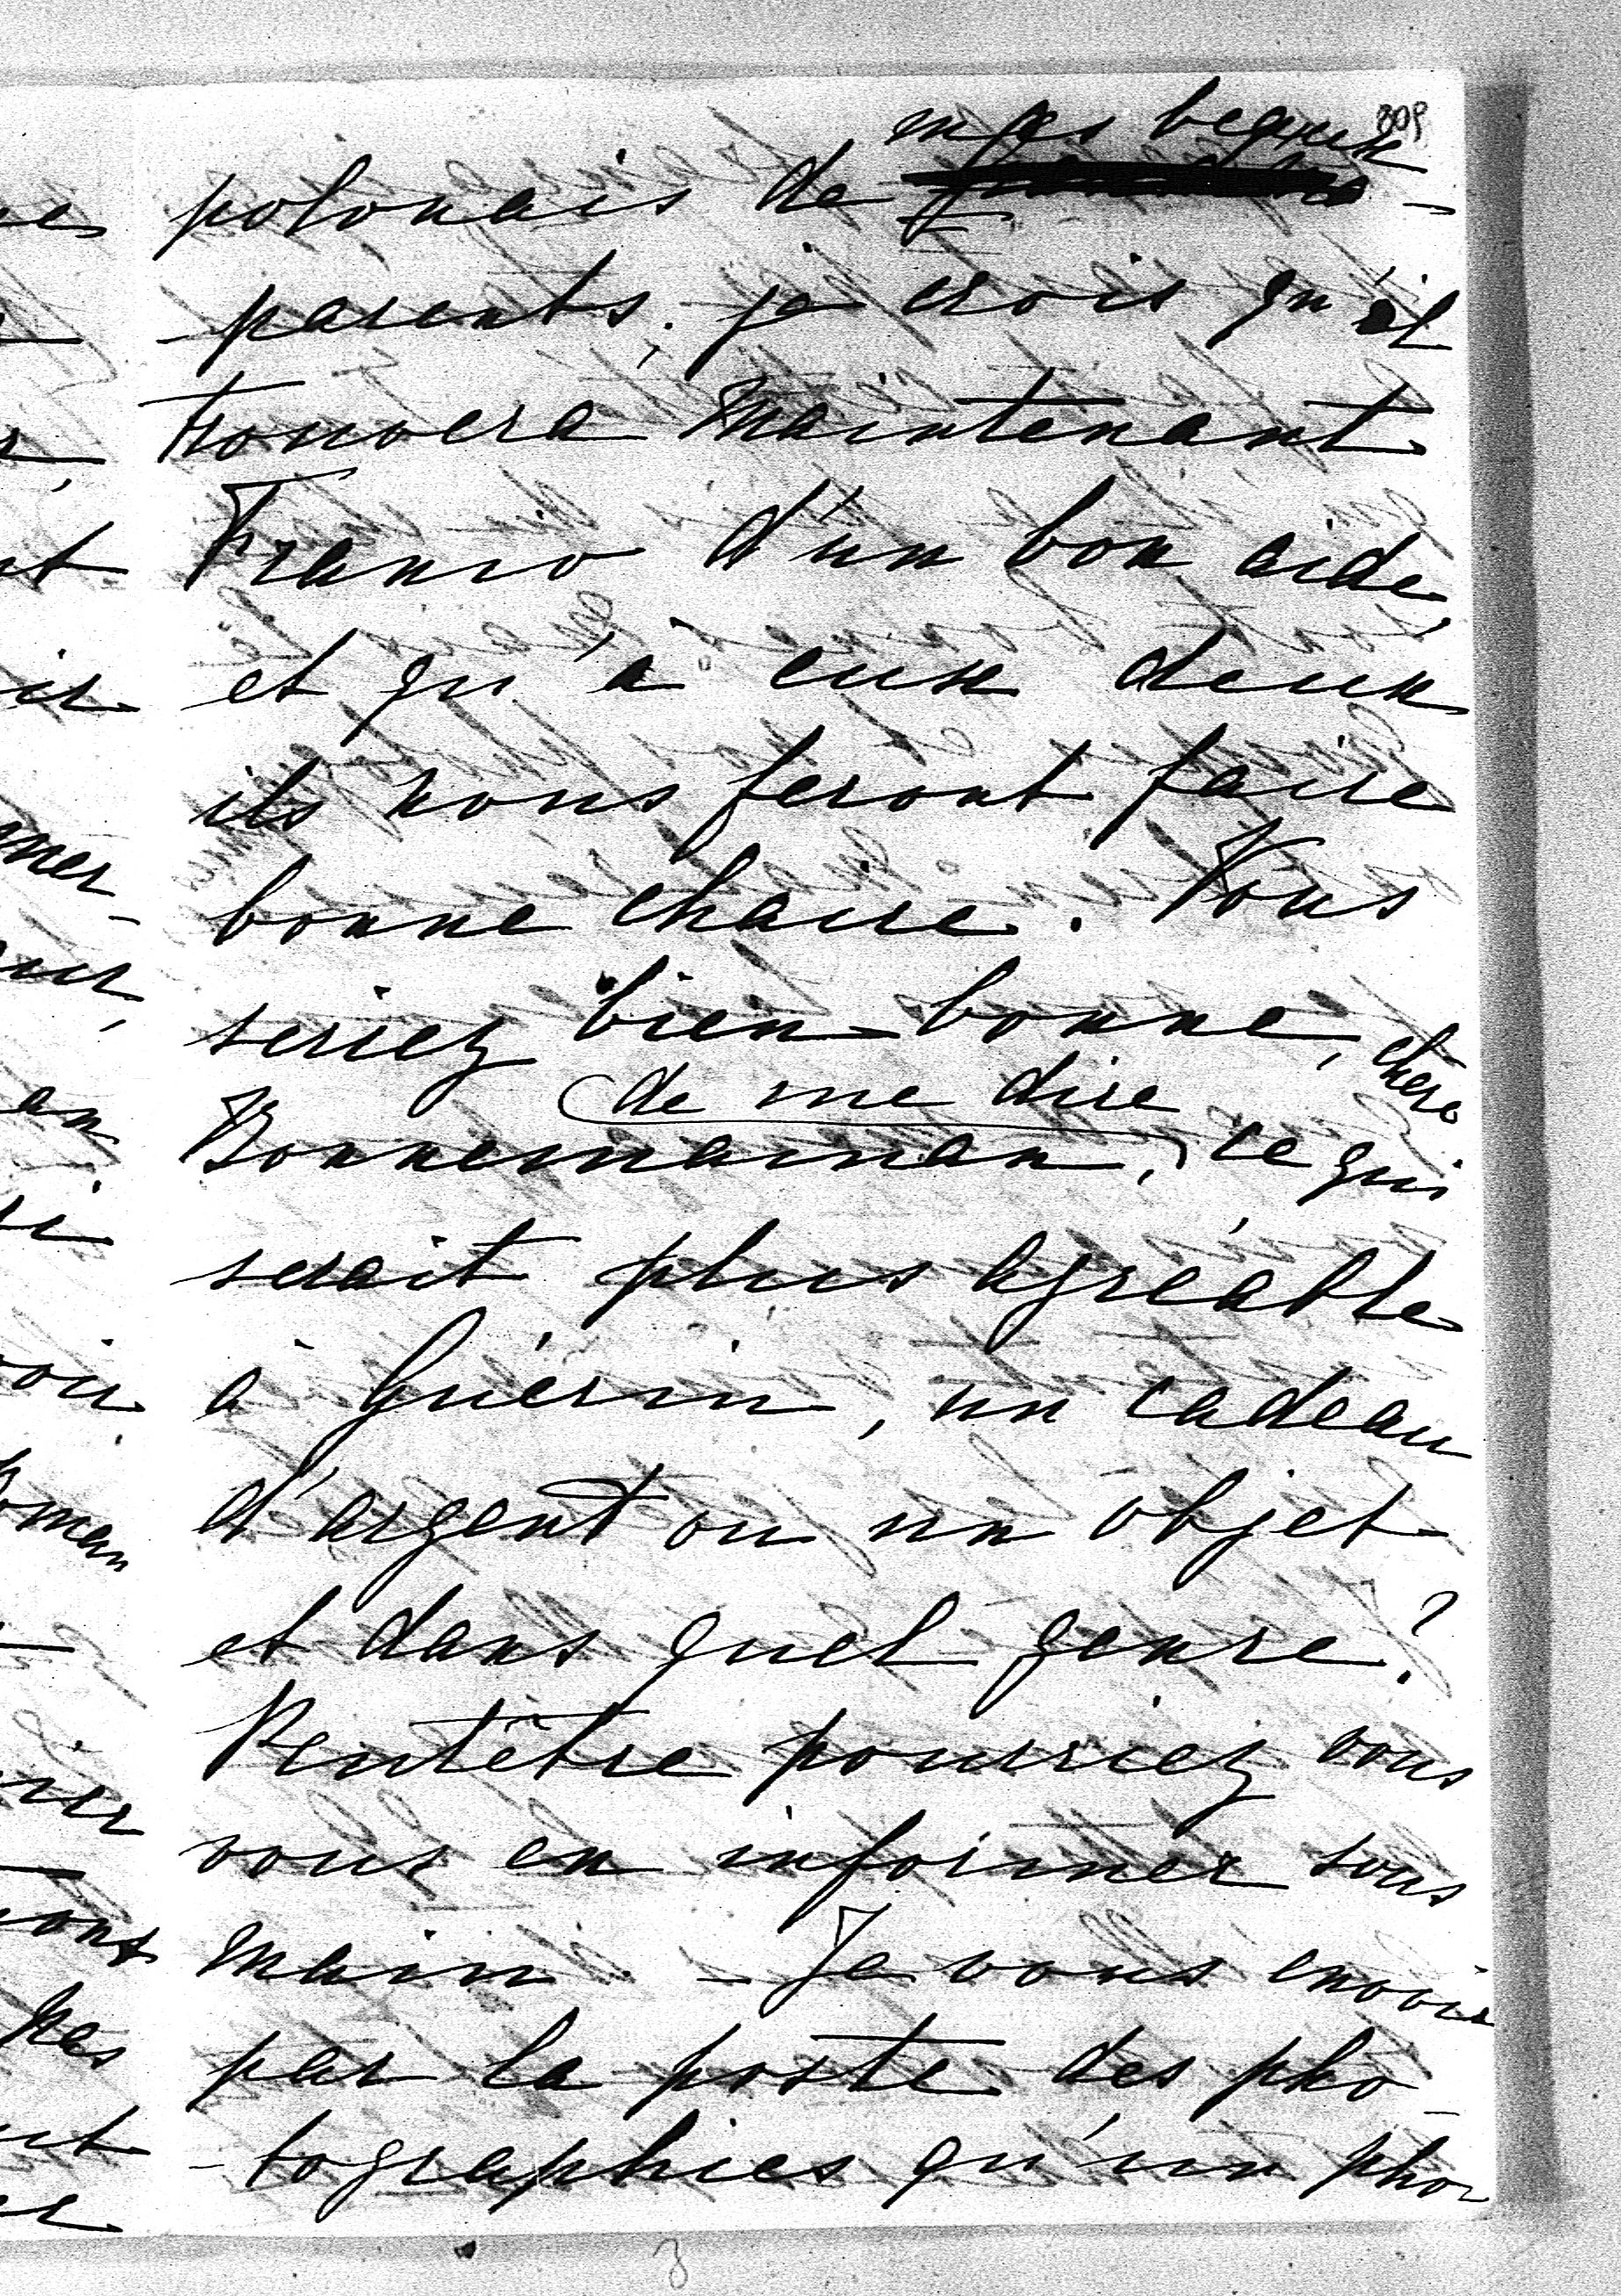 309
mes beaux
polonais de -
-parents; je crois qu'il
trouvera maintenant
d'un bon aide,
et qu'à eux deux
ils nous feront faire
bonne chaire. Vous
seriez bien bonne, chère
de me dire
Bonnemaman, ce qui
serait plus agréable
à Guérin, un cadeau
d'argent ou un objet
et dans quel genre?
Peutêtre pourriez vous
vous en informer sous
main. - Je vous envoie
par la poste des pho-
-tographies qu'un pho-
3